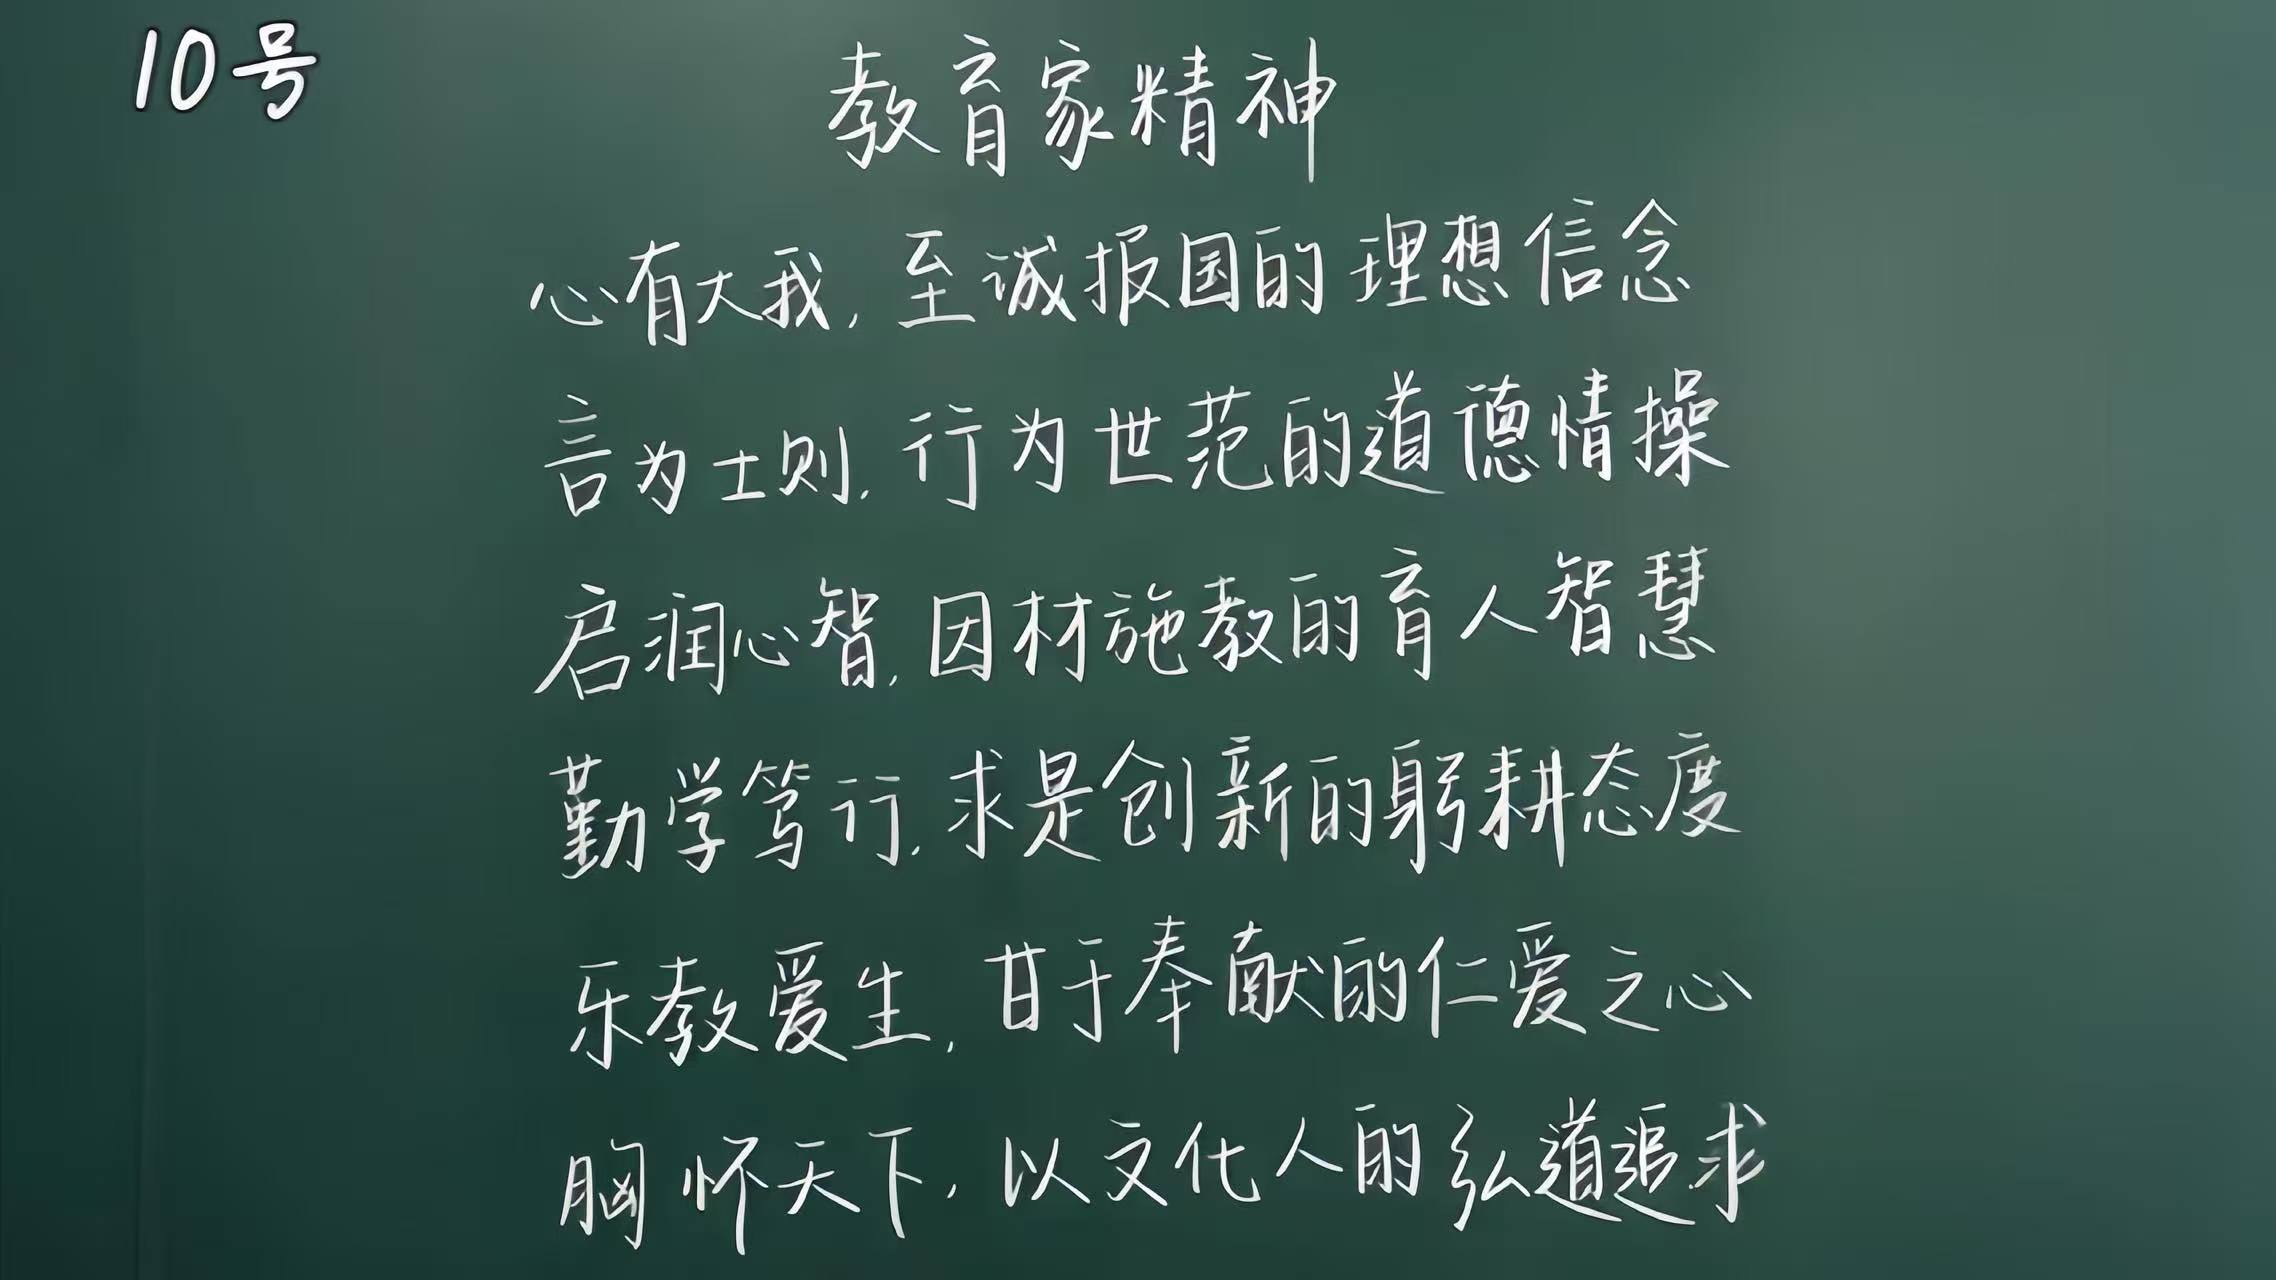 10号
教育家精神
心有大我，至诚报国的理想信念
言为士则，行为世范的道德情操
启润心智，因材施教的育人智慧
勤学笃行，求是创新的躬耕态度
乐教爱生，甘于奉献的仁爱之心
胸怀天下，以文化人的弘道追求